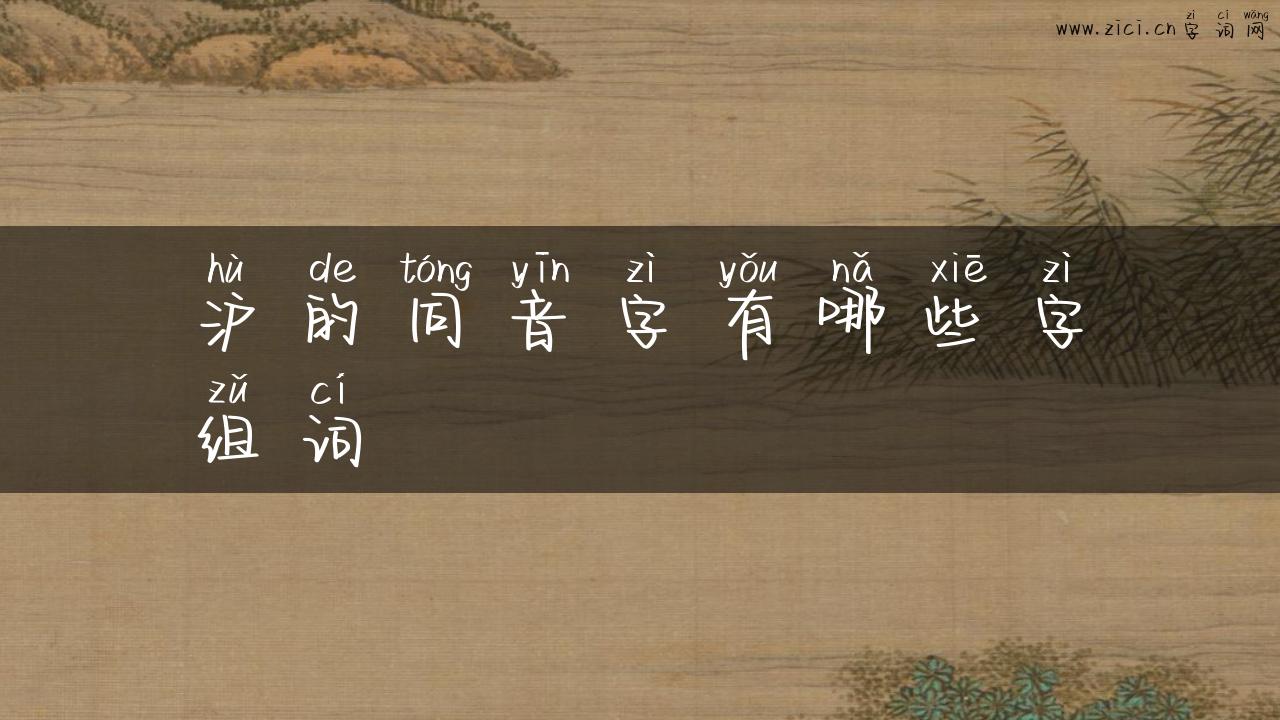 zì cí wǎng
www.zici.cn 字词网
hù de tóng yīn zì yǒu nǎ xiē zì
沪的同音字有哪些字
zǔ cí
组词